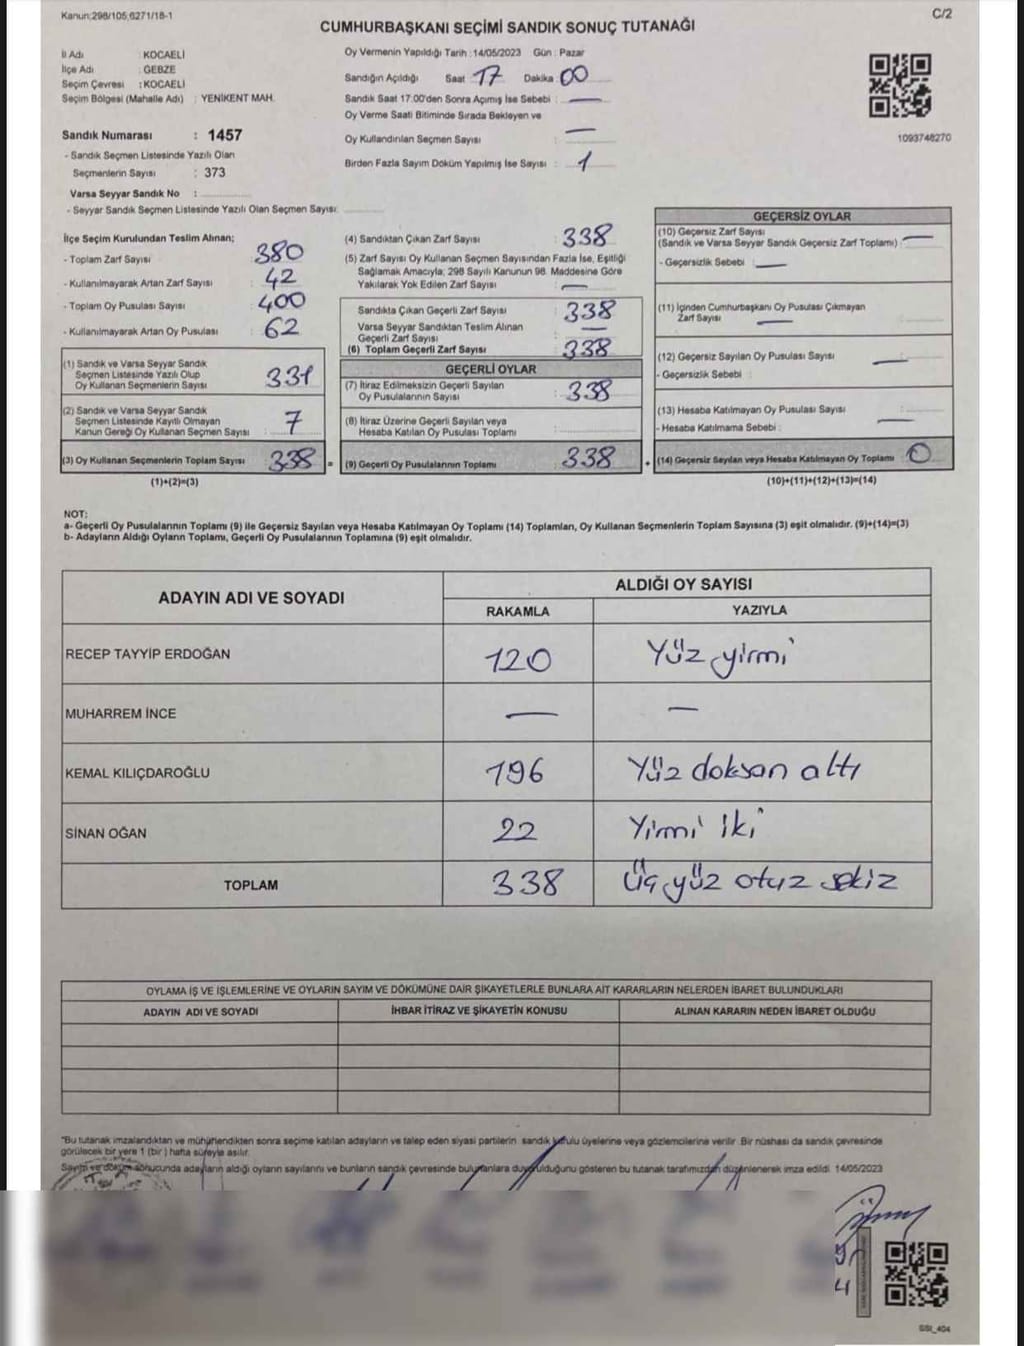 Kanun:298/105,6271/18-1
C/2
CUMHURBAŞKANI SEÇİMİ SANDIK SONUÇ TUTANAĞI
İl Adı : KOCAELİ
İlçe Adı : GEBZE
Seçim Çevresi : KOCAELİ
Seçim Bölgesi (Mahalle Adı) : YENİKENT MAH.
Sandık Numarası : 1457
- Sandık Seçmen Listesinde Yazılı Olan
Seçmenlerin Sayısı : 373
Varsa Seyyar Sandık No :
- Seyyar Sandık Seçmen Listesinde Yazılı Olan Seçmen Sayısı:
Oy Vermenin Yapıldığı Tarih : 14/05/2023 Gün : Pazar
Sandığın Açıldığı Saat 17 Dakika : 00
Sandık Saat 17.00'den Sonra Açımış İse Sebebi : —
Oy Verme Saati Bitiminde Sırada Bekleyen ve
Oy Kullandırılan Seçmen Sayısı : —
Birden Fazla Sayım Döküm Yapılmış İse Sayısı : 1
1093748270
İlçe Seçim Kurulundan Teslim Alınan;
- Toplam Zarf Sayısı : 380
- Kullanılmayarak Artan Zarf Sayısı : 42
- Toplam Oy Pusulası Sayısı : 400
- Kullanılmayarak Artan Oy Pusulası : 62
(1) Sandık ve Varsa Seyyar Sandık
Seçmen Listesinde Yazılı Olup
Oy Kullanan Seçmenlerin Sayısı : 331
(2) Sandık ve Varsa Seyyar Sandık
Seçmen Listesinde Kayıtlı Olmayan
Kanun Gereği Oy Kullanan Seçmen Sayısı : 7
(3) Oy Kullanan Seçmenlerin Toplam Sayısı : 338 =
(1)+(2)=(3)
(4) Sandıktan Çıkan Zarf Sayısı : 338
(5) Zarf Sayısı Oy Kullanan Seçmen Sayısından Fazla İse, Eşitliği
Sağlamak Amacıyla; 298 Sayılı Kanunun 98. Maddesine Göre
Yakılarak Yok Edilen Zarf Sayısı : —
Sandıkta Çıkan Geçerli Zarf Sayısı : 338
Varsa Seyyar Sandıktan Teslim Alınan
Geçerli Zarf Sayısı : —
(6) Toplam Geçerli Zarf Sayısı : 338
GEÇERLİ OYLAR
(7) İtiraz Edilmeksizin Geçerli Sayılan
Oy Pusulalarının Sayısı : 338
(8) İtiraz Üzerine Geçerli Sayılan veya
Hesaba Katılan Oy Pusulası Toplamı :
(9) Geçerli Oy Pusulalarının Toplamı : 338 +
GEÇERSİZ OYLAR
(10) Geçersiz Zarf Sayısı
(Sandık ve Varsa Seyyar Sandık Geçersiz Zarf Toplamı) : —
- Geçersizlik Sebebi : —
(11) İçinden Cumhurbaşkanı Oy Pusulası Çıkmayan
Zarf Sayısı : —
(12) Geçersiz Sayılan Oy Pusulası Sayısı : —
- Geçersizlik Sebebi :
(13) Hesaba Katılmayan Oy Pusulası Sayısı : —
- Hesaba Katılmama Sebebi :
(14) Geçersiz Sayılan veya Hesaba Katılmayan Oy Toplamı : 0
(10)+(11)+(12)+(13)=(14)
NOT:
a- Geçerli Oy Pusulalarının Toplamı (9) ile Geçersiz Sayılan veya Hesaba Katılmayan Oy Toplamı (14) Toplamları, Oy Kullanan Seçmenlerin Toplam Sayısına (3) eşit olmalıdır. (9)+(14)=(3)
b- Adayların Aldığı Oyların Toplamı, Geçerli Oy Pusulalarının Toplamına (9) eşit olmalıdır.
ADAYIN ADI VE SOYADI
ALDIĞI OY SAYISI
RAKAMLA YAZIYLA
RECEP TAYYİP ERDOĞAN 120 Yüz yirmi
MUHARREM İNCE — —
KEMAL KILIÇDAROĞLU 196 Yüz doksan altı
SİNAN OĞAN 22 Yirmi iki
TOPLAM 338 Üç yüz otuz sekiz
OYLAMA İŞ VE İŞLEMLERİNE VE OYLARIN SAYIM VE DÖKÜMÜNE DAİR ŞİKAYETLERLE BUNLARA AİT KARARLARIN NELERDEN İBARET BULUNDUKLARI
ADAYIN ADI VE SOYADI İHBAR İTİRAZ VE ŞİKAYETİN KONUSU ALINAN KARARIN NEDEN İBARET OLDUĞU
"Bu tutanak imzalandıktan ve mühürlendikten sonra seçime katılan adayların ve talep eden siyasi partilerin sandık kurulu üyelerine veya gözlemcilerine verilir. Bir nüshası da sandık çevresinde
görülecek bir yere 1 (bir) hafta süreyle asılır.
Sayım ve döküm sonucunda adayların aldığı oyların sayılarını ve bunların sandık çevresinde bulunanlara duyurulduğunu gösteren bu tutanak tarafımızdan düzenlenerek imza edildi. 14/05/2023
SSI_404